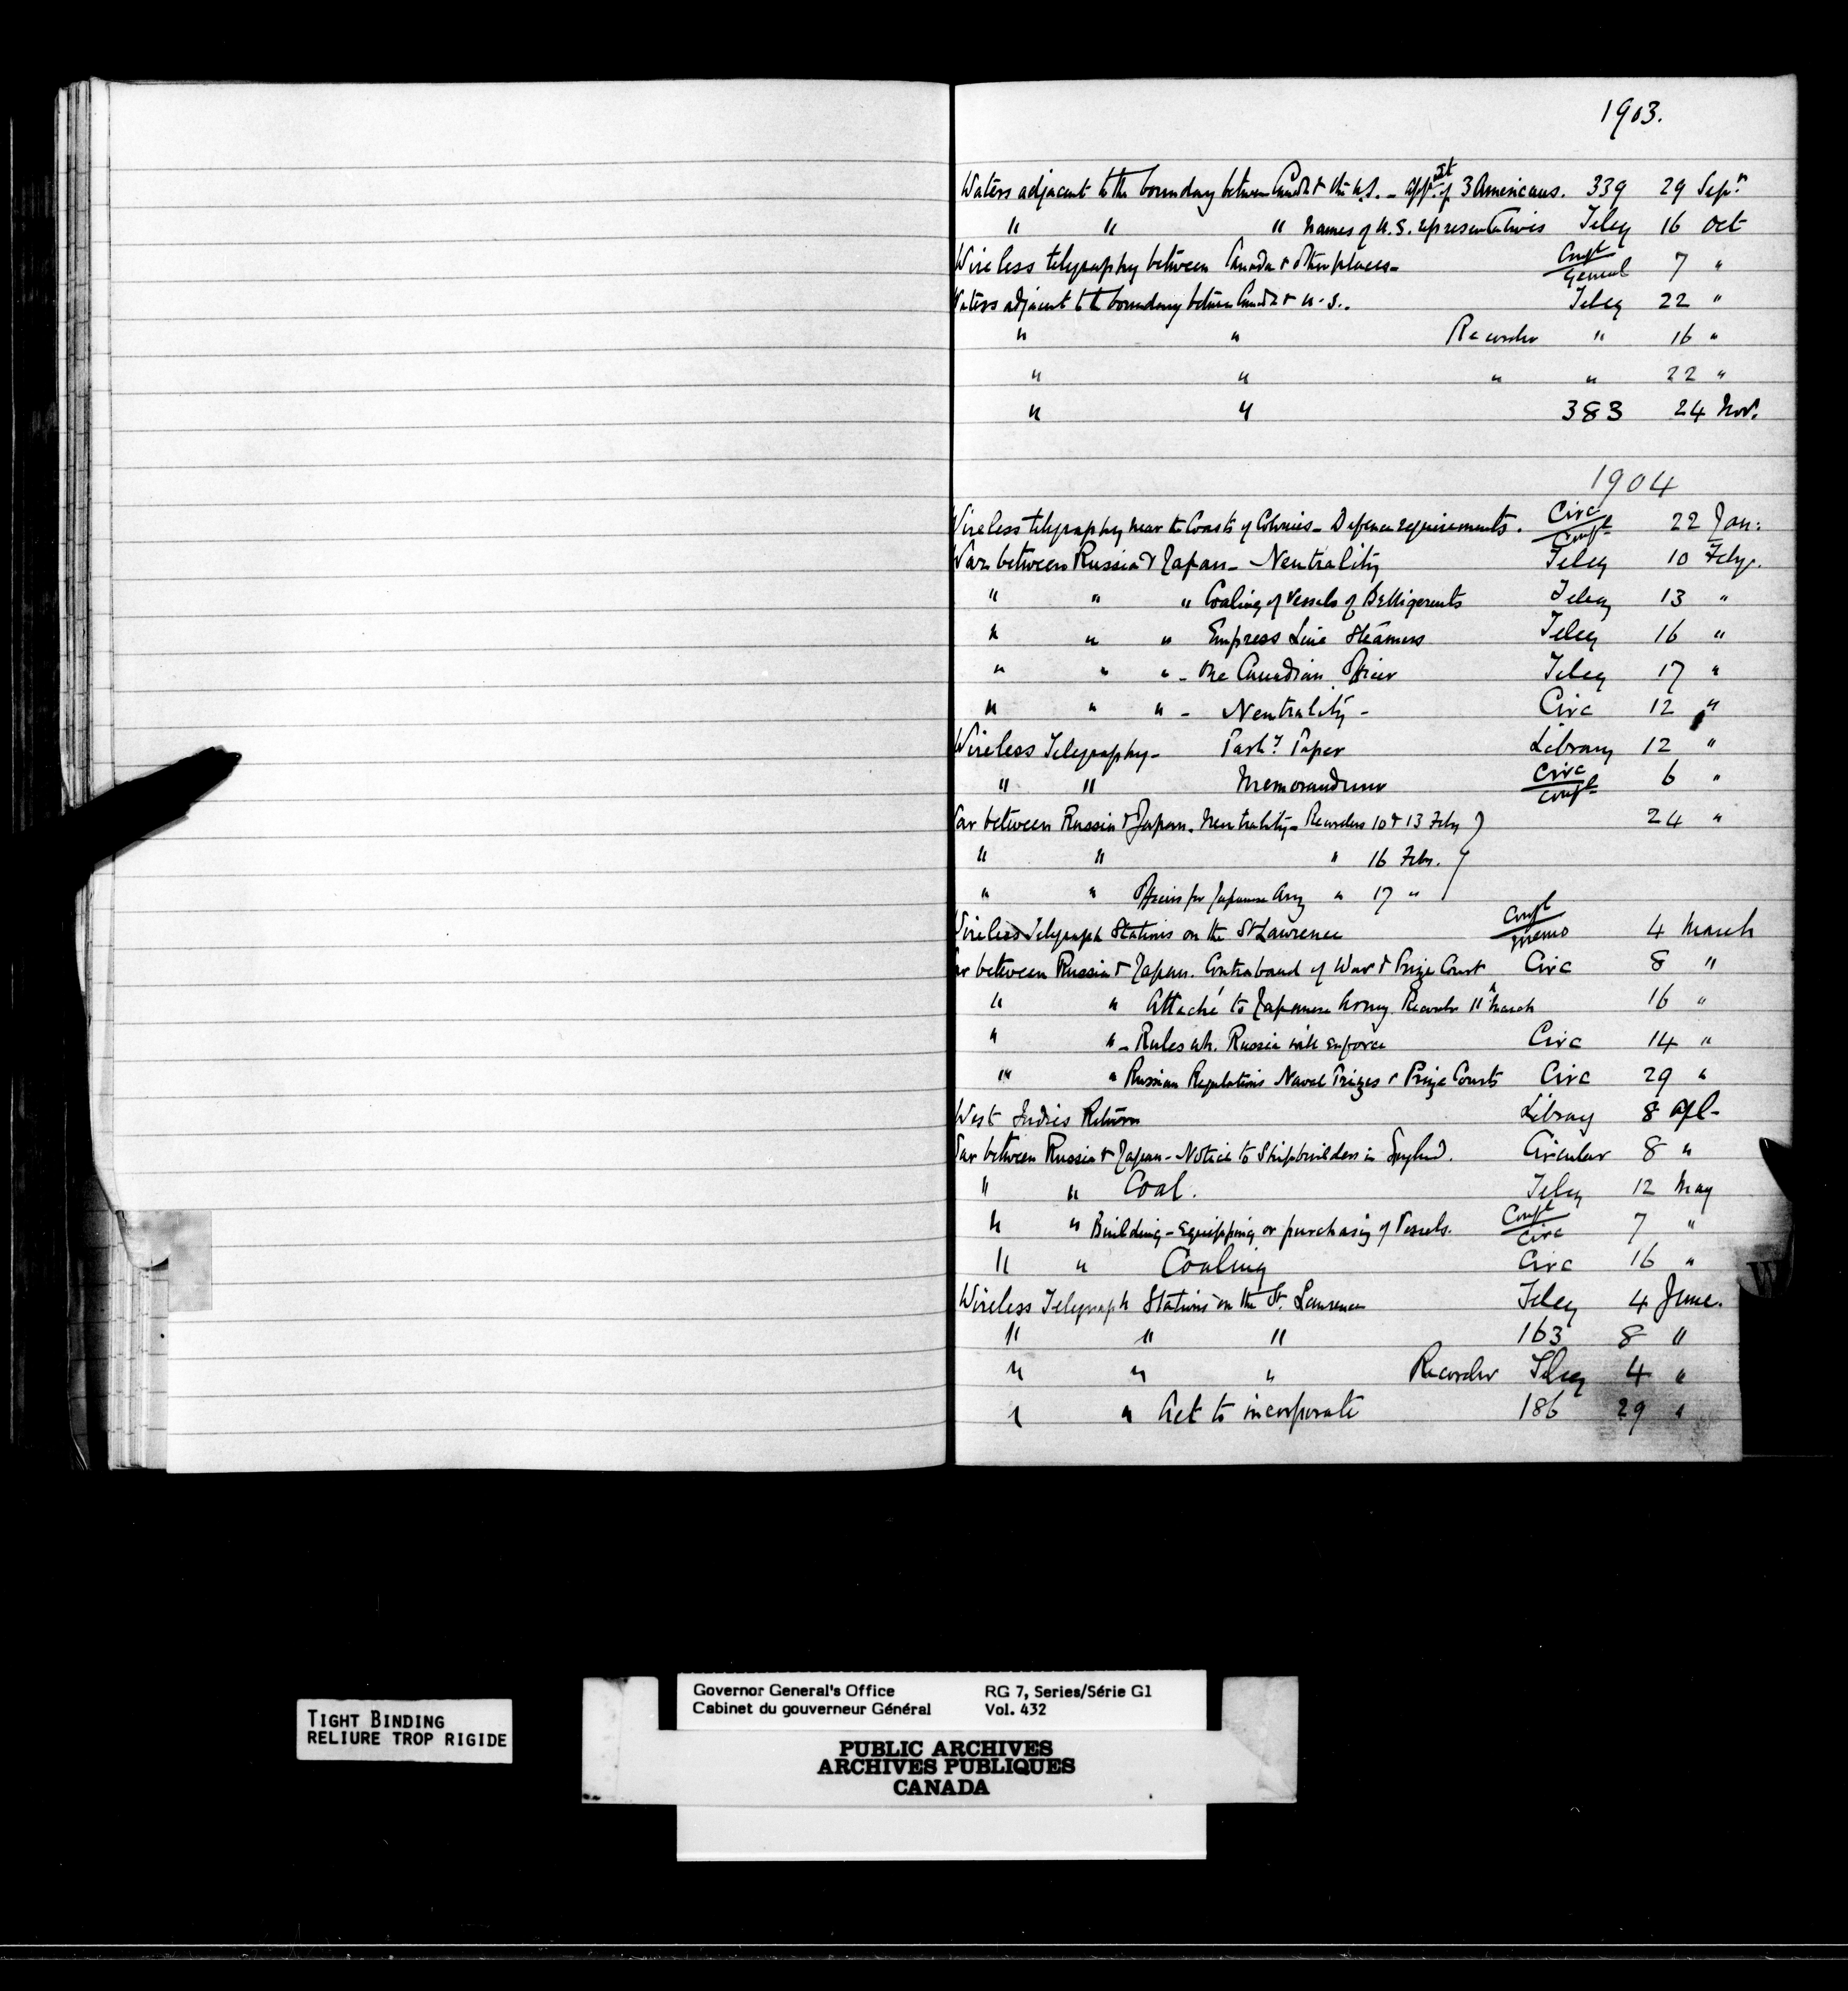 1903.
Waters adjacent to the boundary between Canada & the U.S. - appt. of 3 Americans. 339 29 Sepr
" " " Names of U.S. representatives Teleg 16 Oct
Wireless telegraphy between Canada & other places - Confl General 7 "
Waters adjacent to the boundary between Canada & U.S. Teleg 22 "
" " Recorder " 16 "
" " " " 22 "
" " 383 24 Nov.
1904
Wireless telegraphy near the Coasts of Colonies - Defence requirements. Circ Confl 22 Jan:
War between Russia & Japan - Neutrality Teleg 10 Feby.
" " " Coaling of Vessels of Belligerents Teleg 13 "
" " " Empress Line Steamers Teleg 16 "
" " " - One Canadian Officer Teleg 17 "
" " " - Neutrality - Circ 12 "
Wireless Telegraphy - Parly Paper Library 12 "
" " Memorandum Circ Confl 6 "
War between Russia & Japan. Neutrality - Recorders 10 & 13 Feby } 24 "
" " " 16 Feby.
" " Officers for Japanese Army " 17 "
Wireless Telegraph Stations on the St Lawrence Confl memo 4 March
War between Russia & Japan. Contraband of War & Prize Court Circ 8 "
" " Attaché to Japanese Army. Recorder 11th March 16 "
" " - Rules wh. Russia will enforce Circ 14 "
" " Russian Regulations Naval Prizes & Prize Courts Circ 29 "
West Indies Return Library 8 Apl -
War between Russia & Japan - Notice to Shipbuilders in England. Circular 8 "
" " Coal. Teleg 12 May
" " Building - equipping or purchasing of Vessels. Confl Circ 7 "
" " Coaling Circ 16 "
Wireless Telegraph Stations on the St. Lawrence Teleg 4 June.
" " " 163 8 "
" " " Recorder Teleg 4 "
" " Act to incorporate 186 29 "
W
TIGHT BINDING
RELIURE TROP RIGIDE
Governor General's Office RG 7, Series/Série G1
Cabinet du gouverneur Général Vol. 432
PUBLIC ARCHIVES
ARCHIVES PUBLIQUES
CANADA